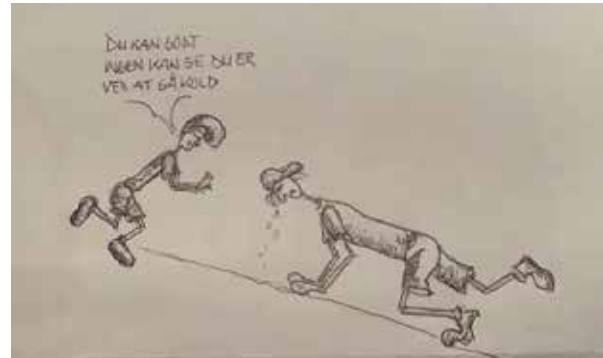 DU KAN GODT
INGEN KAN SE DU ER
VED AT GÅ KOLD